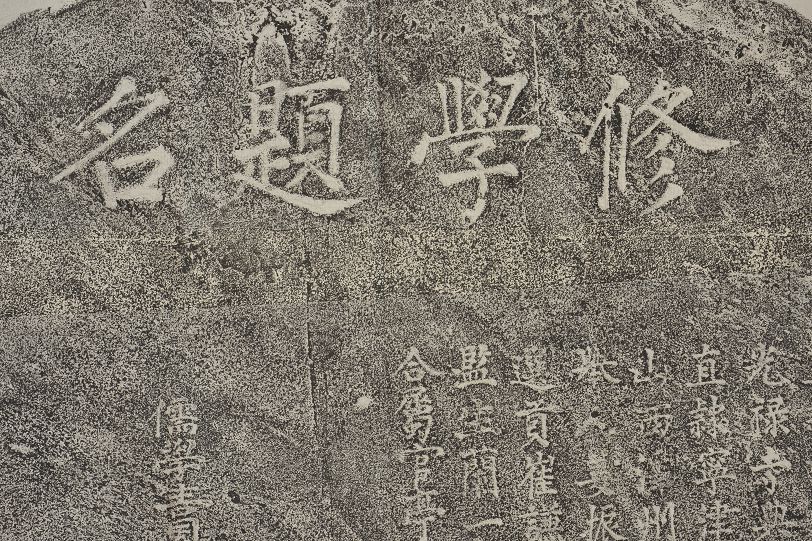 修學題名
光祿寺典
直隸寧津
山西 州
振
選貢崔
監生閻一
合屬官
儒學